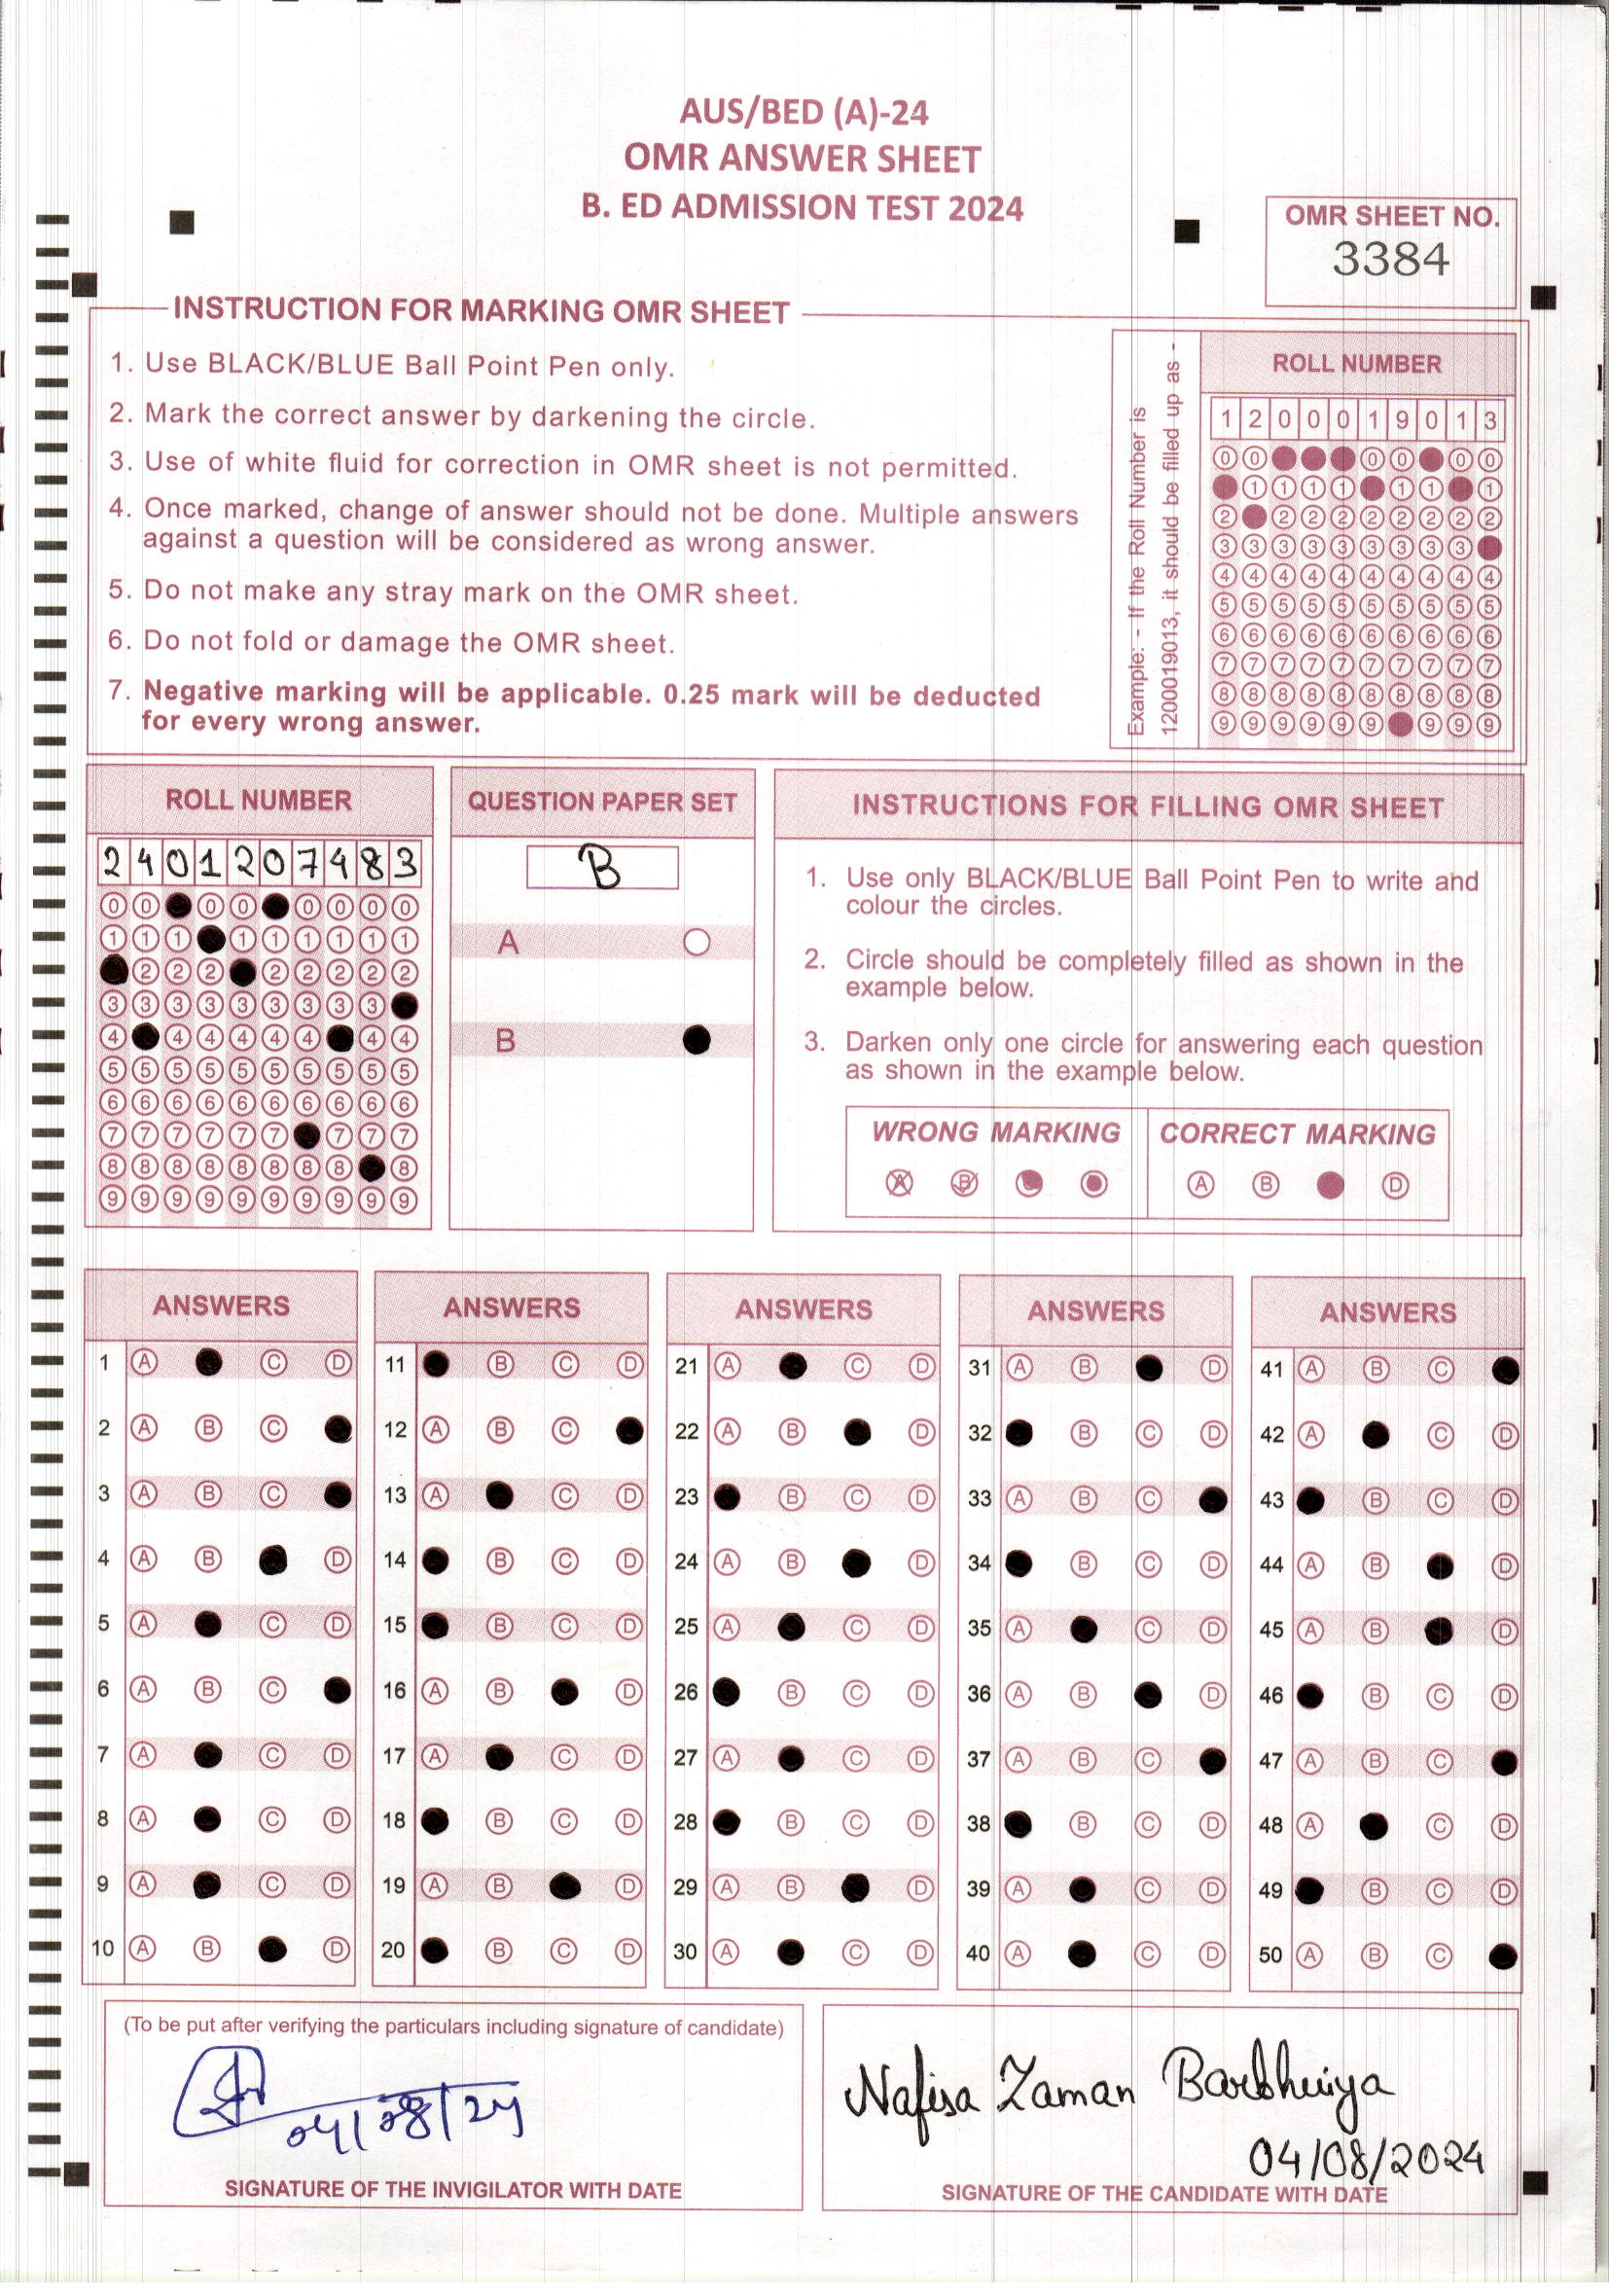 AUS/BED (A)-24
OMR ANSWER SHEET
B. ED ADMISSION TEST 2024
OMR SHEET NO.
3384
INSTRUCTION FOR MARKING OMR SHEET
1. Use BLACK/BLUE Ball Point Pen only.
2. Mark the correct answer by darkening the circle.
3. Use of white fluid for correction in OMR sheet is not permitted.
4. Once marked, change of answer should not be done. Multiple answers
against a question will be considered as wrong answer.
5. Do not make any stray mark on the OMR sheet.
6. Do not fold or damage the OMR sheet.
7. Negative marking will be applicable. 0.25 mark will be deducted
for every wrong answer.
Example: - If the Roll Number is
1200019013, it should be filled up as -
ROLL NUMBER
1 2 0 0 0 1 9 0 1 3
0 0 0 0 0 0
1 1 1 1 1 1 1
2 2 2 2 2 2 2 2 2
3 3 3 3 3 3 3 3 3
4 4 4 4 4 4 4 4 4 4
5 5 5 5 5 5 5 5 5 5
6 6 6 6 6 6 6 6 6 6
7 7 7 7 7 7 7 7 7 7
8 8 8 8 8 8 8 8 8 8
9 9 9 9 9 9 9 9 9
ROLL NUMBER
2 4 0 1 2 0 7 4 8 3
0 0 0 0 0 0 0 0
1 1 1 1 1 1 1 1 1
2 2 2 2 2 2 2 2
3 3 3 3 3 3 3 3 3
4 4 4 4 4 4 4 4
5 5 5 5 5 5 5 5 5 5
6 6 6 6 6 6 6 6 6 6
7 7 7 7 7 7 7 7 7
8 8 8 8 8 8 8 8 8
9 9 9 9 9 9 9 9 9 9
QUESTION PAPER SET
B
A
B
INSTRUCTIONS FOR FILLING OMR SHEET
1. Use only BLACK/BLUE Ball Point Pen to write and
colour the circles.
2. Circle should be completely filled as shown in the
example below.
3. Darken only one circle for answering each question
as shown in the example below.
WRONG MARKING
A B
CORRECT MARKING
A B D
ANSWERS
1 A C D
2 A B C
3 A B C
4 A B D
5 A C D
6 A B C
7 A C D
8 A C D
9 A C D
10 A B D
ANSWERS
11 B C D
12 A B C
13 A C D
14 B C D
15 B C D
16 A B D
17 A C D
18 B C D
19 A B D
20 B C D
ANSWERS
21 A C D
22 A B D
23 B C D
24 A B D
25 A C D
26 B C D
27 A C D
28 B C D
29 A B D
30 A C D
ANSWERS
31 A B D
32 B C D
33 A B C
34 B C D
35 A C D
36 A B D
37 A B C
38 B C D
39 A C D
40 A C D
ANSWERS
41 A B C
42 A C D
43 B C D
44 A B D
45 A B D
46 B C D
47 A B C
48 A C D
49 B C D
50 A B C
(To be put after verifying the particulars including signature of candidate)
04/08/24
SIGNATURE OF THE INVIGILATOR WITH DATE
Nafisa Zaman Barbhuiya
04/08/2024
SIGNATURE OF THE CANDIDATE WITH DATE